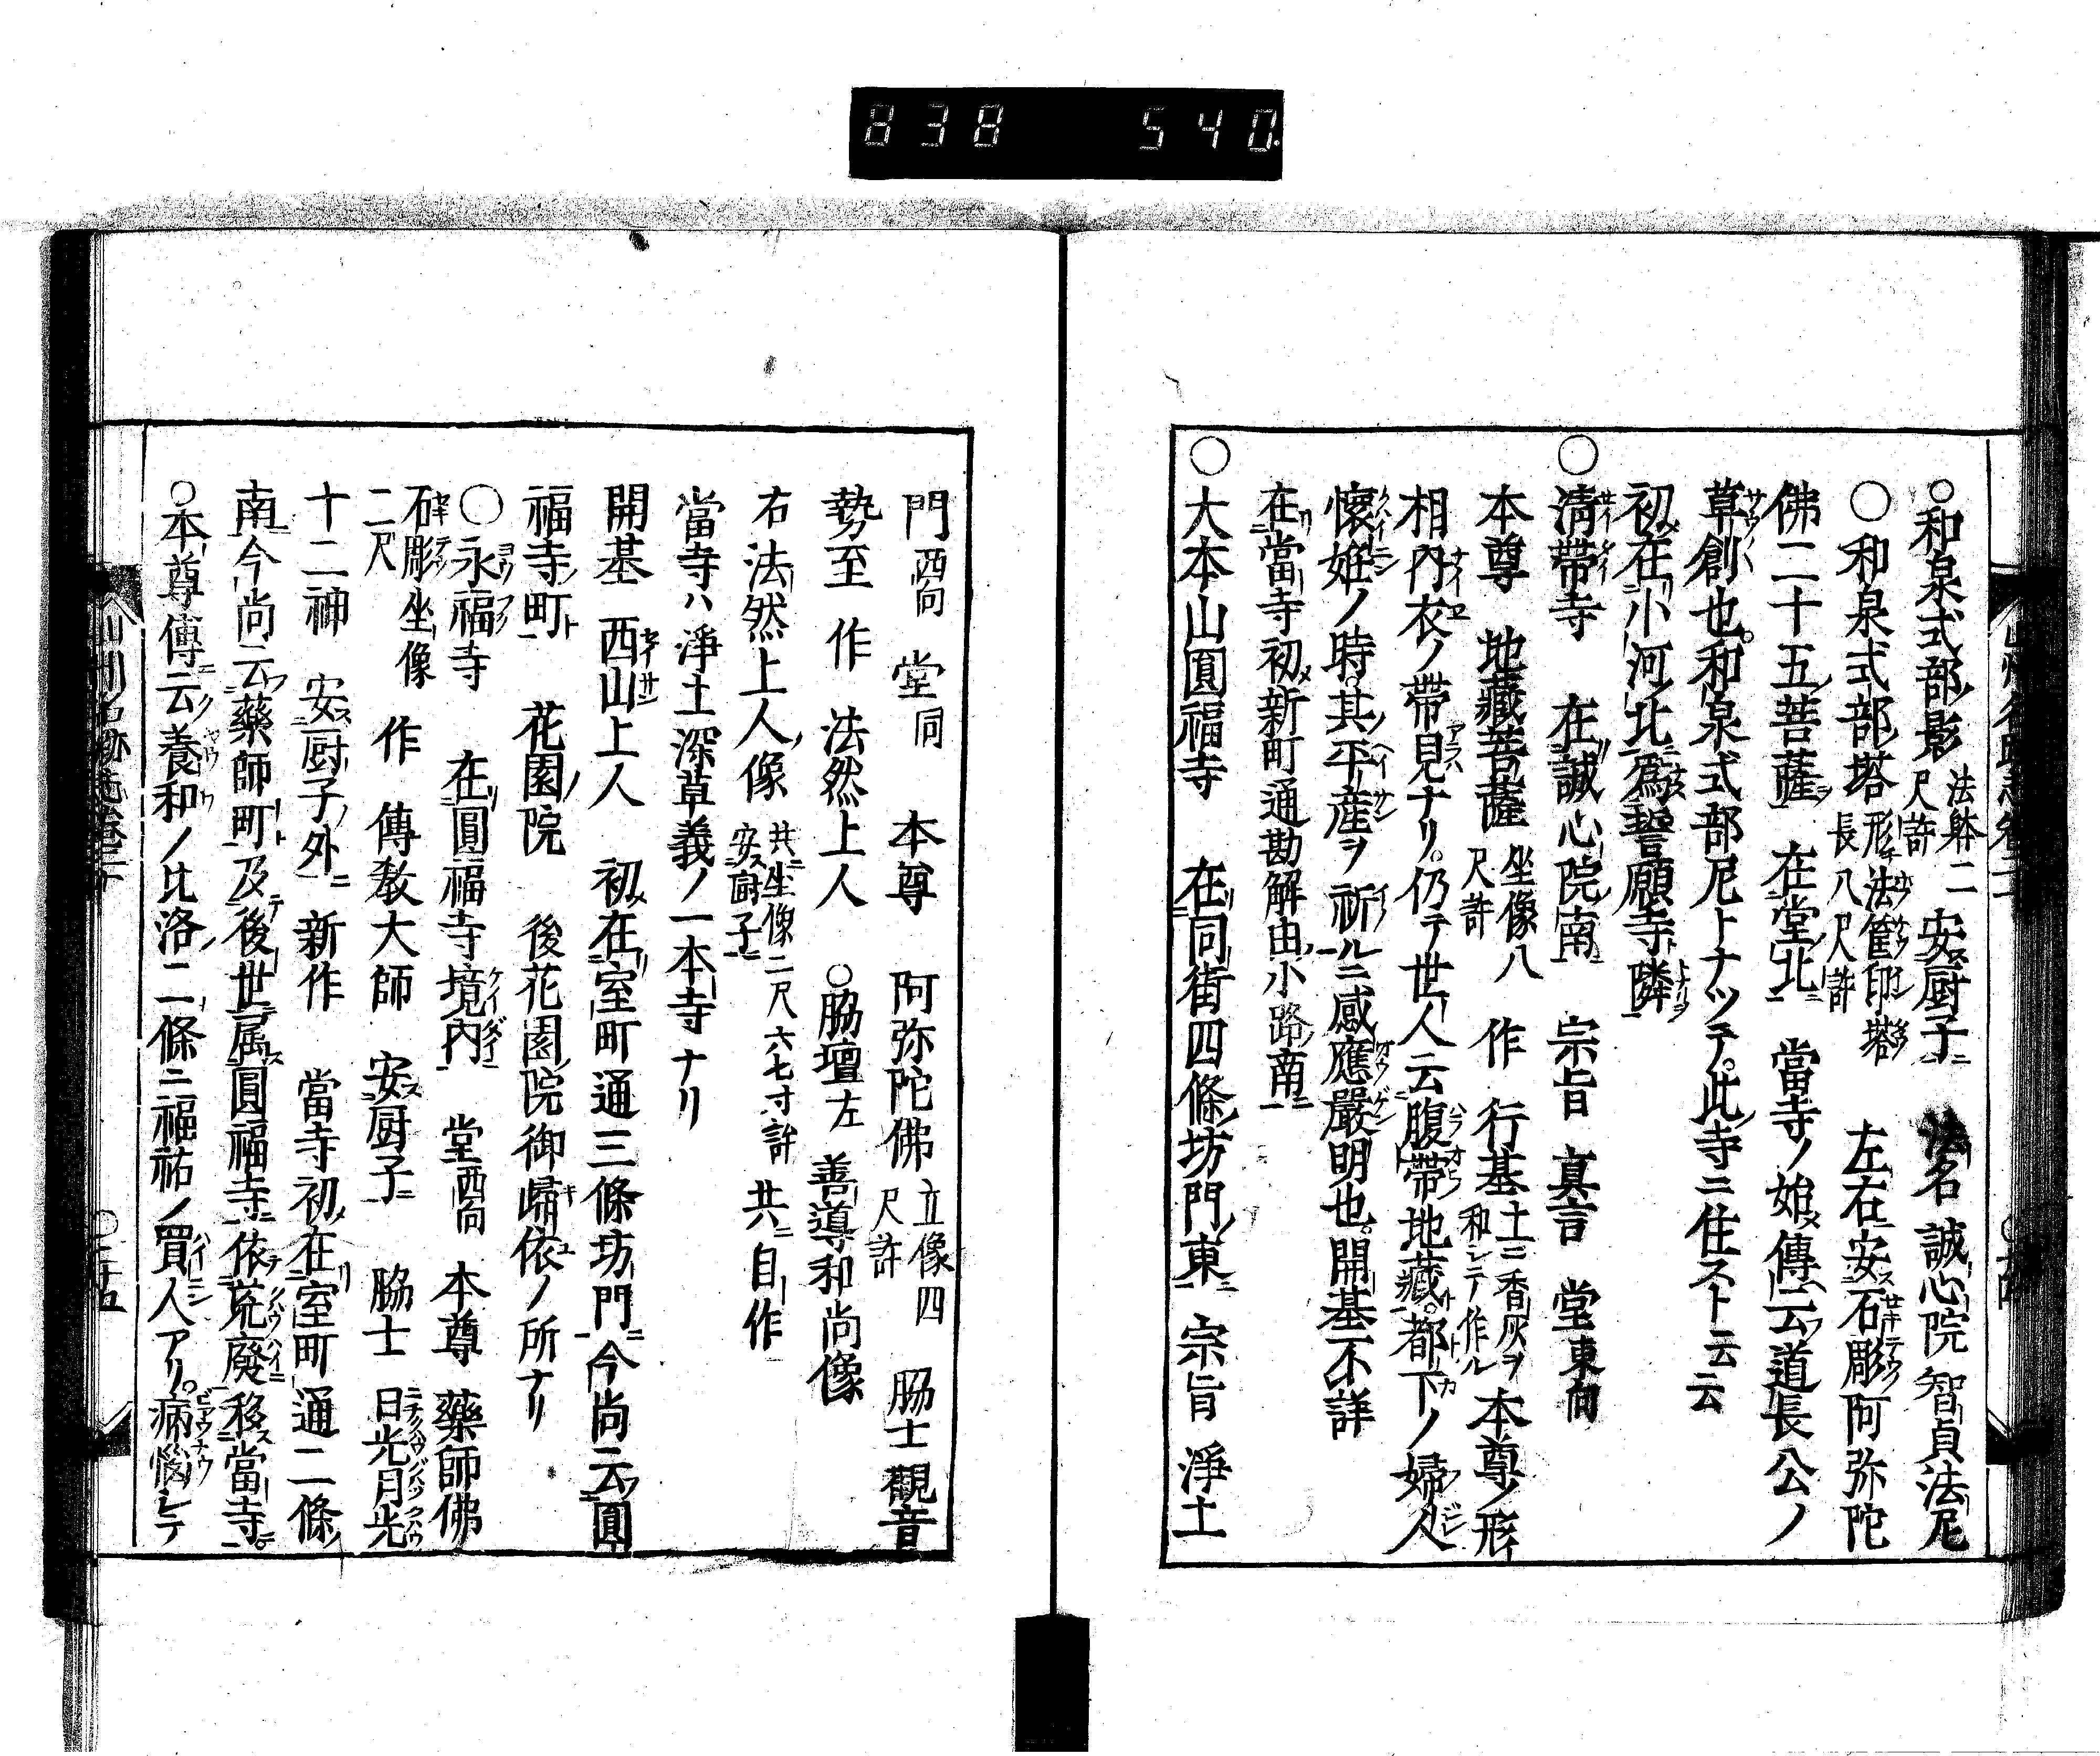 838 540
○和泉式部影 法躰二尺許 安厨子 法名誠心院智貞法尼
○和泉式部塔 形チ法筐印塔長八尺許 左右安石彫阿弥陀
佛二十五菩薩 在堂北 當寺ノ始傳云道長公ノ
草創也。和泉式部尼トナツテ。此寺ニ住スト云云
初在小河北爲誓願寺隣
○清帯寺 在誠心院南 宗旨真言 堂東向
本尊 地藏菩薩 坐像八尺許 作 行基 土ニ香灰ヲ和シテ作ル 本尊ノ形
相内衣ノ帯見ナリ。仍テ世人云腹帯地藏。都下ノ婦人
懷姙ノ時。其平産ヲ祈ルニ感應嚴明也。開基不詳
在當寺初新町通勘解由小路南
○大本山圓福寺 在同街四條坊門東 宗旨淨土
門西向 堂同 本尊 阿弥陀佛 立像四尺許 脇士觀音
勢至 作 法然上人 ○脇壇左 善導和尚像
右法然上人像 共坐像二尺六七寸許安厨子 共自作
當寺ハ淨土深草義ノ一本寺ナリ
開基 西山上人 初在室町通三條坊門今尚云圓
福寺町 花園院 後花園院御歸依ノ所ナリ
○永福寺 在圓福寺境内 堂西向 本尊藥師佛
石彫坐像二尺 作 傳教大師 安厨子 脇士 日光月光
十二神 安厨子外 新作 當寺初在室町通二條
南今尚云藥師町及後世属圓福寺依荒廢移當寺。
○本尊傳云養和ノ比洛二條ニ福祐ノ買人アリ。病惱シテ